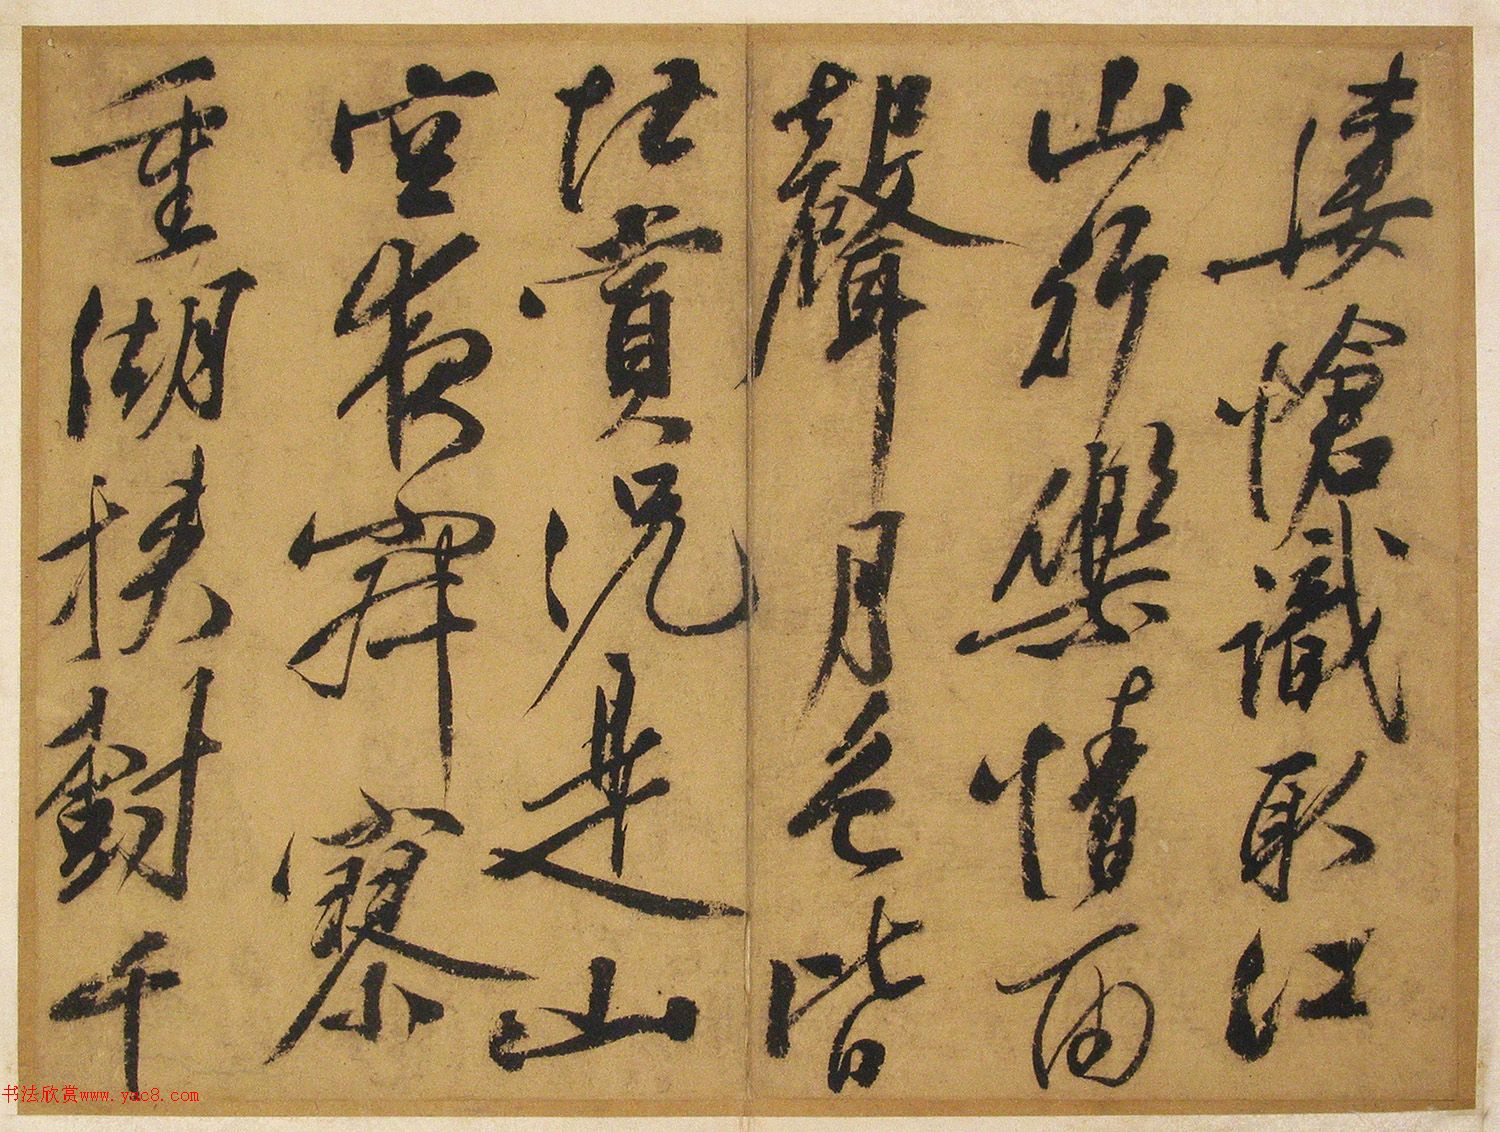 淒愴識取江
山行樂情雨
聲月色皆
佳賞況是山
空夜寂寥
重湖挾對千
书法欣赏www.yac8.com